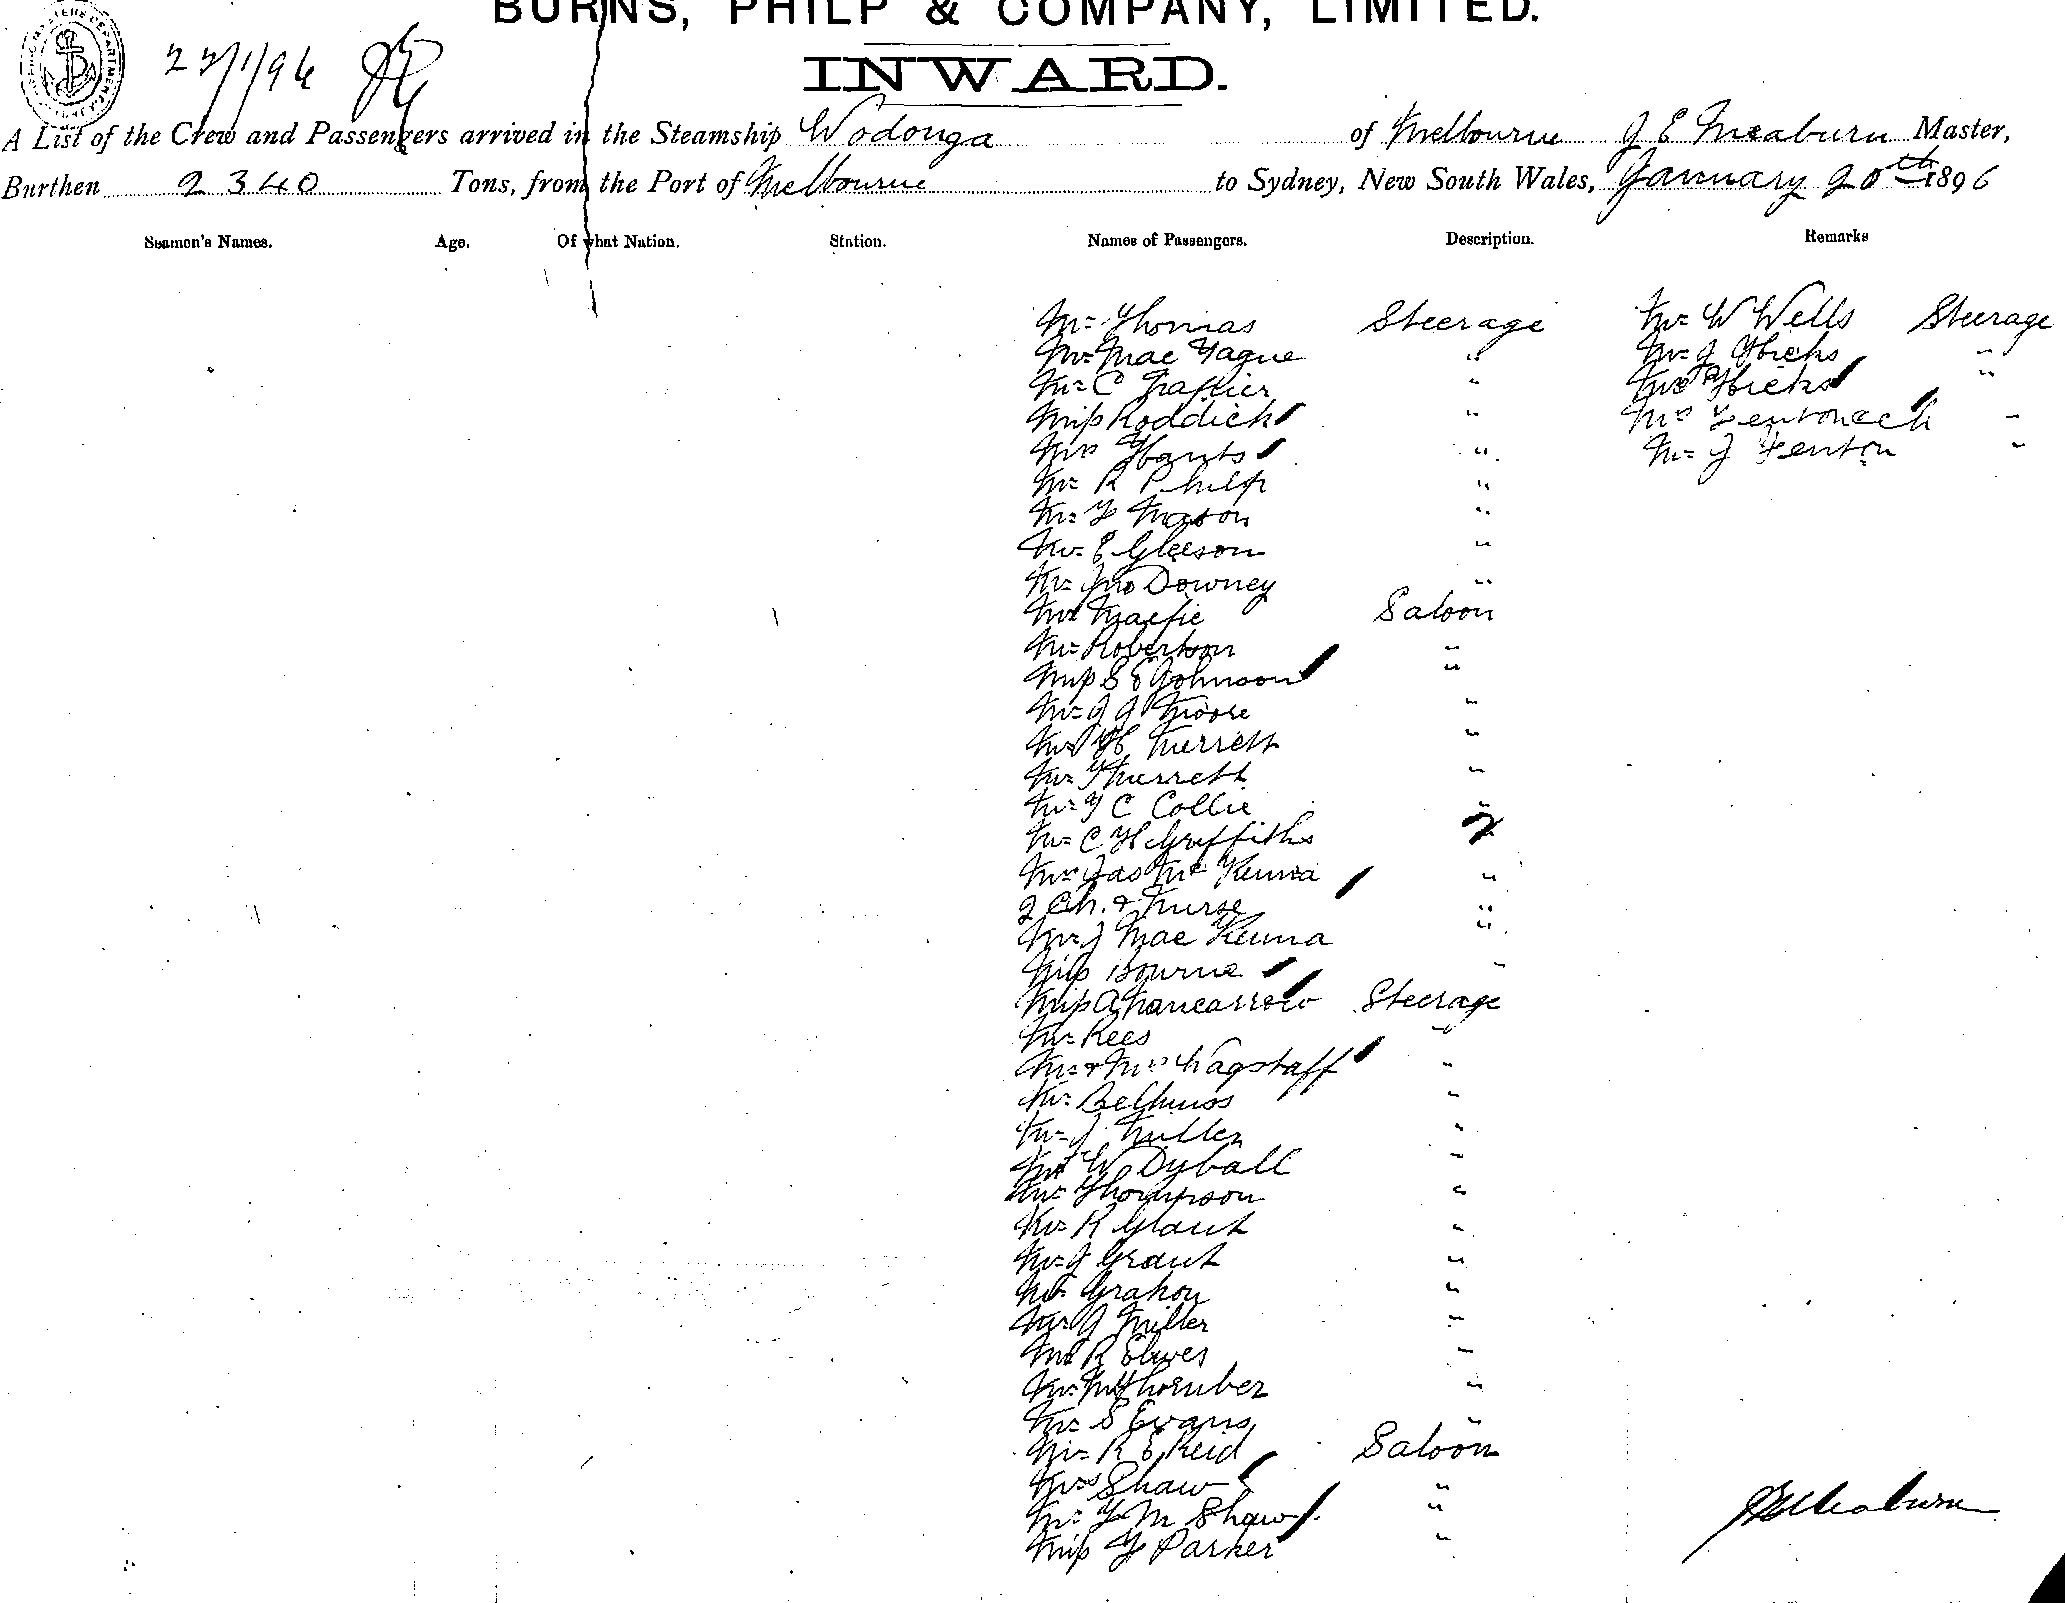 BURNS, PHILP & COMPANY, LIMITED.
INWARD.
22/1/96
A List of the Crew and Passengers arrived in the Steamship Wodonga of Melbourne J E Meaburn Master,
Burthen 2340 Tons, from the Port of Melbourne to Sydney, New South Wales, January 20th 1896
Seamen's Names. Age. Of what Nation. Station. Names of Passengers. Description. Remarks
Mr Thomas Steerage Mr W Wells Steerage
Mr Mac " Mr J Hicks "
Mr C " Mrs Hicks "
Miss Roddick " Mrs "
Mrs " Mr J Fenton "
Mr R Philp "
Mr Mason "
Mr E Gleeson "
Mr Jno Downey "
Mr Macfie Saloon
Mr Robertson "
Miss S E Johnson "
Mr J J Moore "
Mr H Murrell "
Mr "
Mr C Collie "
Mr C H Griffiths "
Mr Jas Mc Kenna "
2 Ch. & Nurse "
Mr J Mac Kenna "
Miss Bourne "
Miss A Nancarrow Steerage
Mr Rees "
Mr & Mrs Wagstaff "
Mr "
Mr J Miller "
Mr W Dyball "
Mr Thompson "
Mr R Grant "
Mr J Grant "
Mr "
Mr J Miller "
Mr R "
Mr Thornber "
Mr S Evans "
Mr R E Reid Saloon
Mrs Shaw "
Mr M Shaw "
Miss Parker "
J E Meaburn